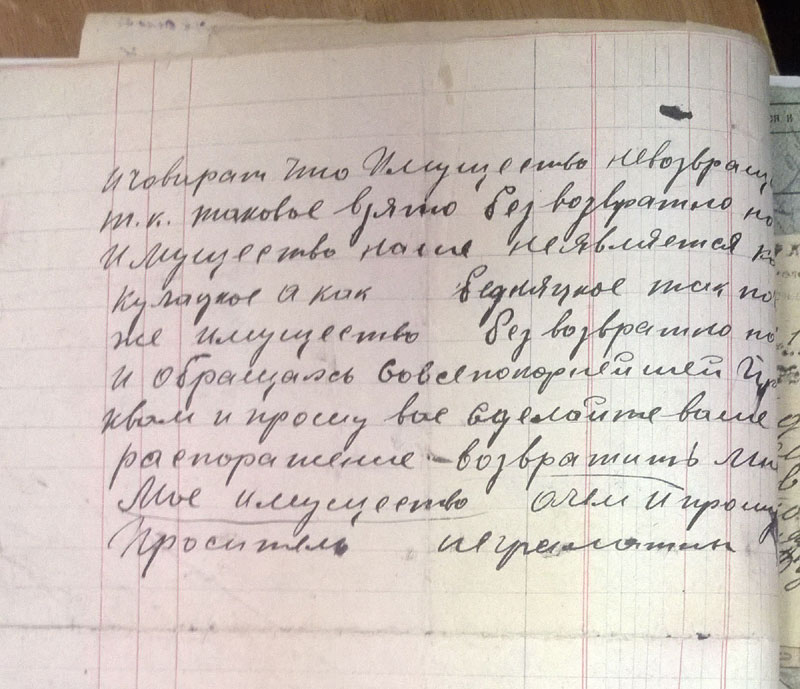 и човират что Имущество невозвращ
т.к. таковое взято безвозвратно но
Имущество наше неявляется ка
кулацкое а как бедняцкое так по
же имущество безвозвратно по
и обращаясь совсепокорнейшей Пр
квам и прошу вас сделайте ваше
распоражение - возвратить Мн
Мое имущество очем и прошу
Проситель неграмотны